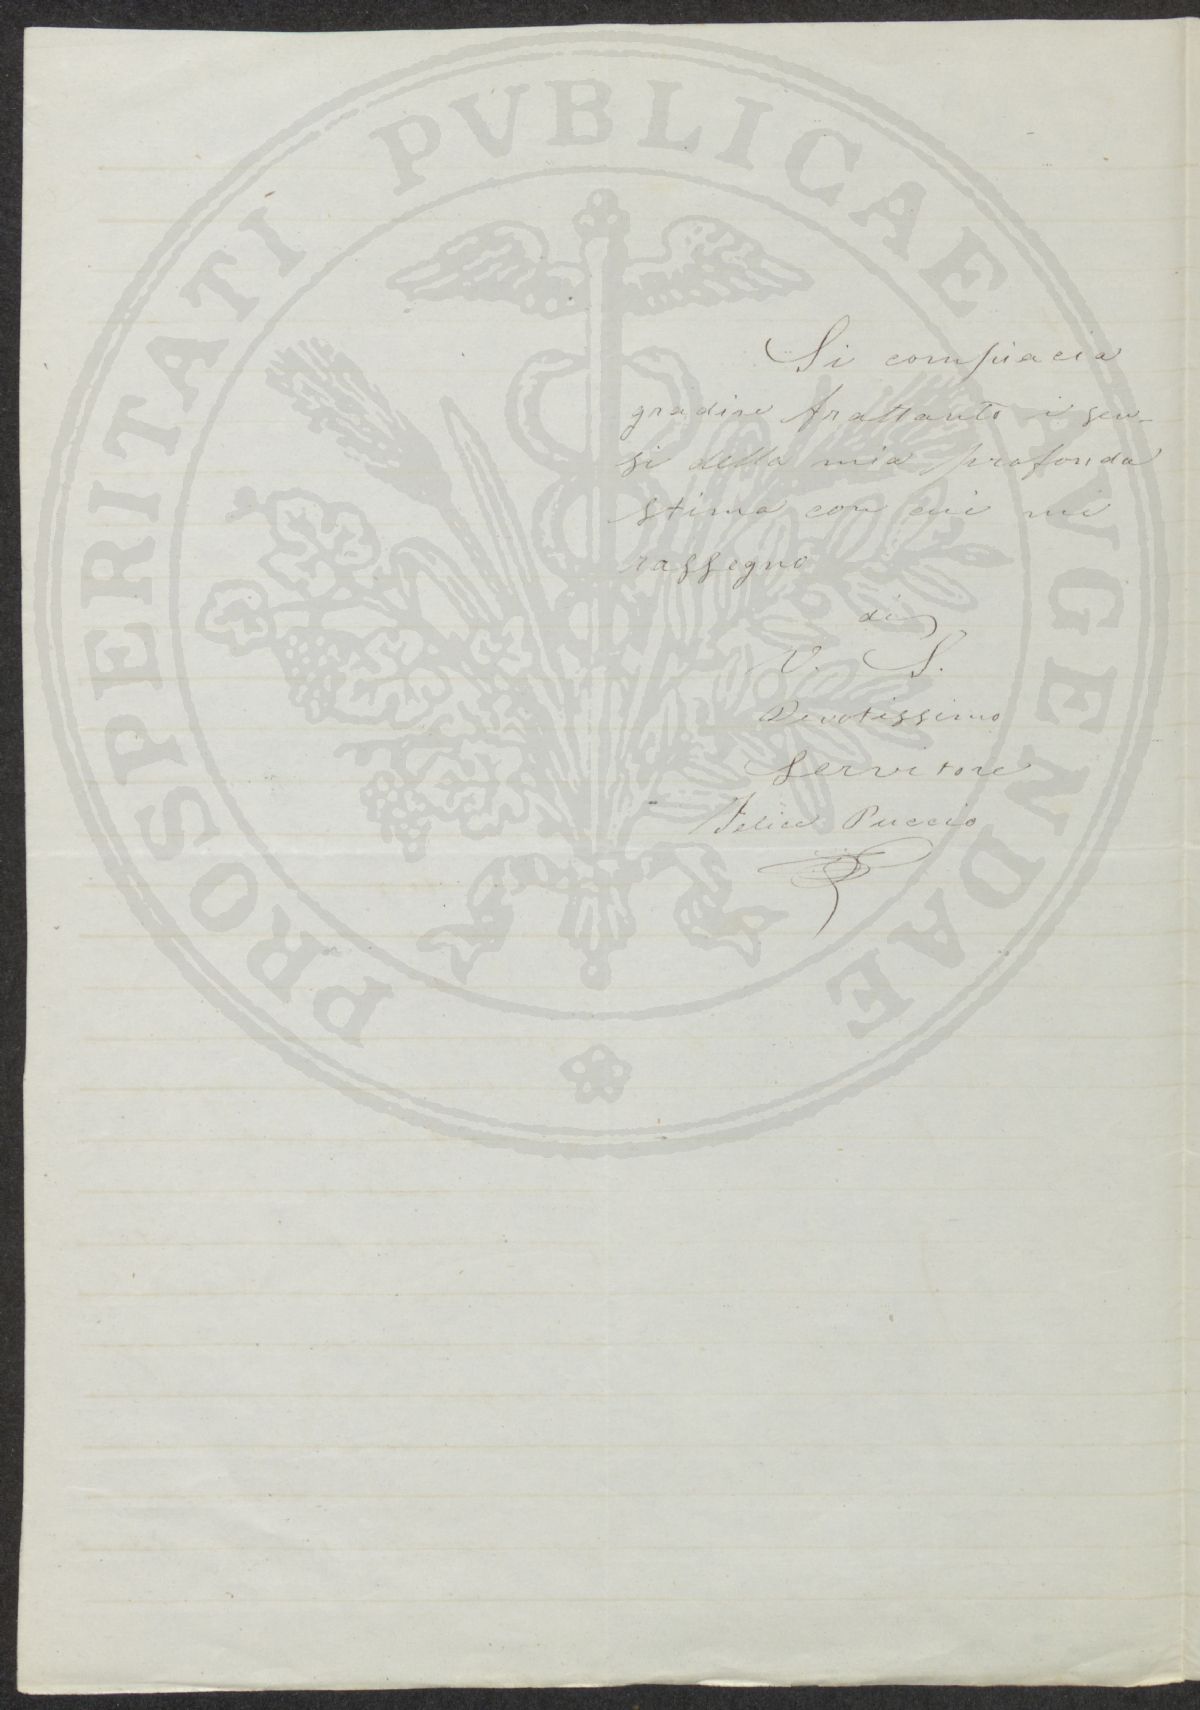 PROSPERITATI PVBLICAE AVGENDAE
Si compiacia
gradire frattanto i sen-
si della mia profonda
stima con cui mi
rassegno
di
V. S.
Devotissimo
Servitore
Felice Puccio